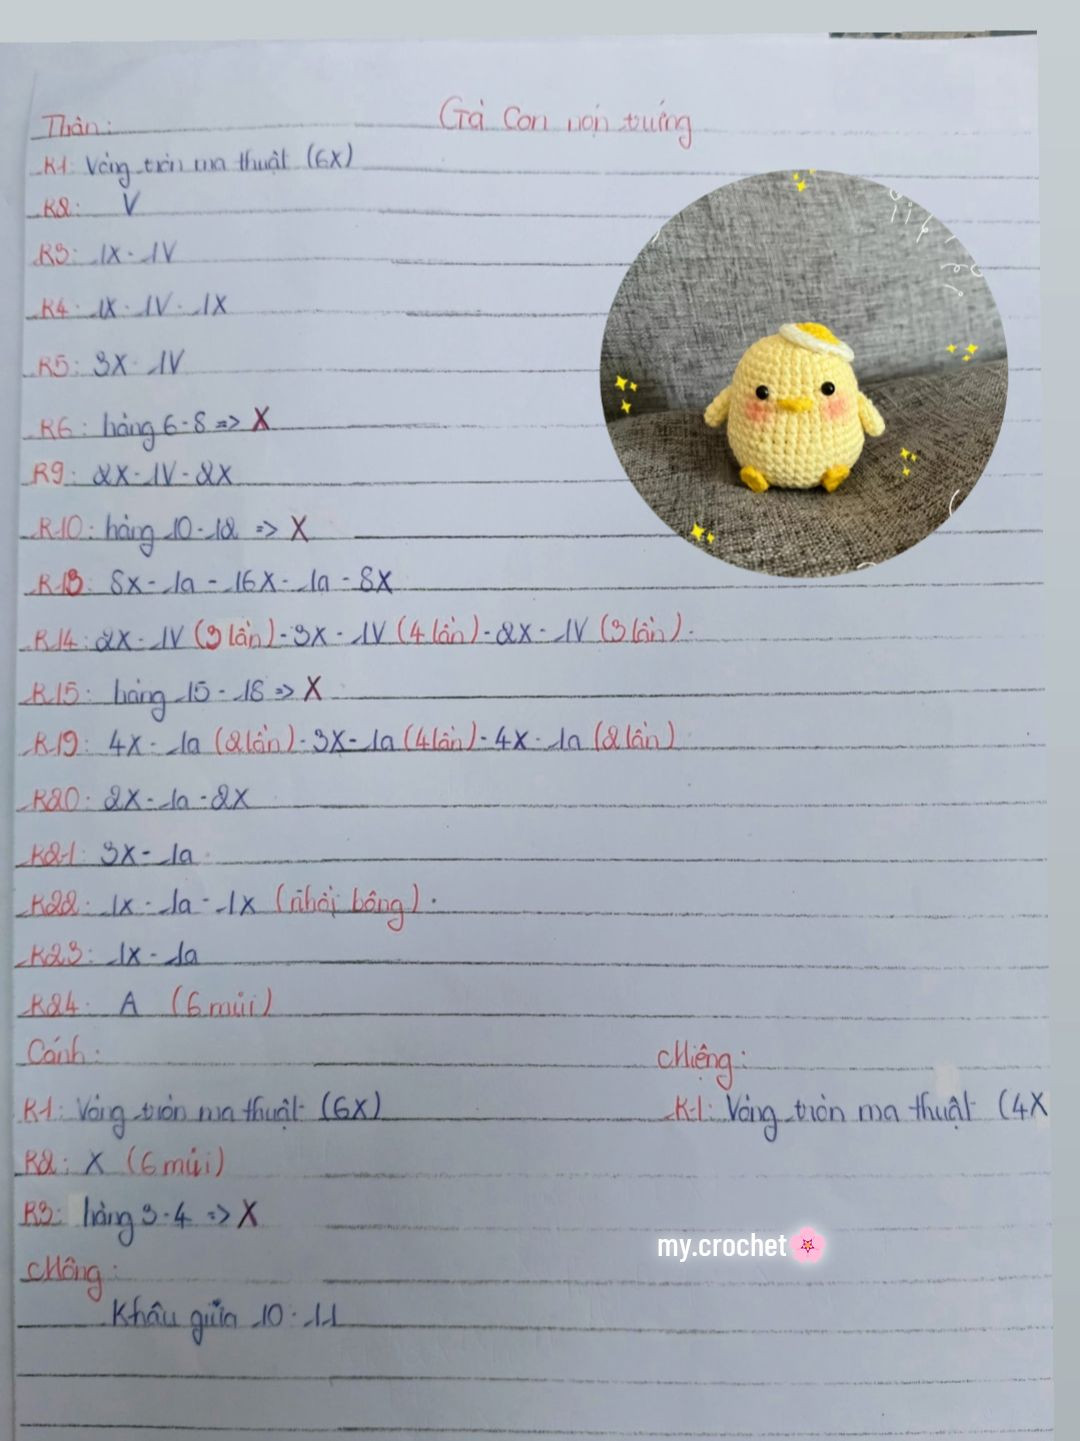 Thân:
Gà Con nón trứng
R1: Vòng tròn ma thuật (6X)
R2: V
R3: 1X - 1V
R4: 1X - 1V - 1X
R5: 3X - 1V
R6: hàng 6-8 => X
R9: 2X - 1V - 2X
R10: hàng 10-12 => X
R13: 8X - 1a - 16X - 1a - 8X
R14: 2X - 1V (3 lần) - 3X - 1V (4 lần) - 2X - 1V (3 lần).
R15: hàng 15 - 18 => X
R19: 4X - 1a (2 lần) - 3X - 1a (4 lần) - 4X - 1a (2 lần)
R20: 2X - 1a - 2X
R21: 3X - 1a
R22: 1X - 1a - 1X (nhồi bông).
R23: 1X - 1a
R24: A (6 mũi)
Cánh:
Miệng:
R1: Vòng tròn ma thuật (6X)
R1: Vòng tròn ma thuật (4X
R2: X (6 mũi)
R3: hàng 3-4 => X
my.crochet🌸
Mông:
Khâu giữa 10 - 11